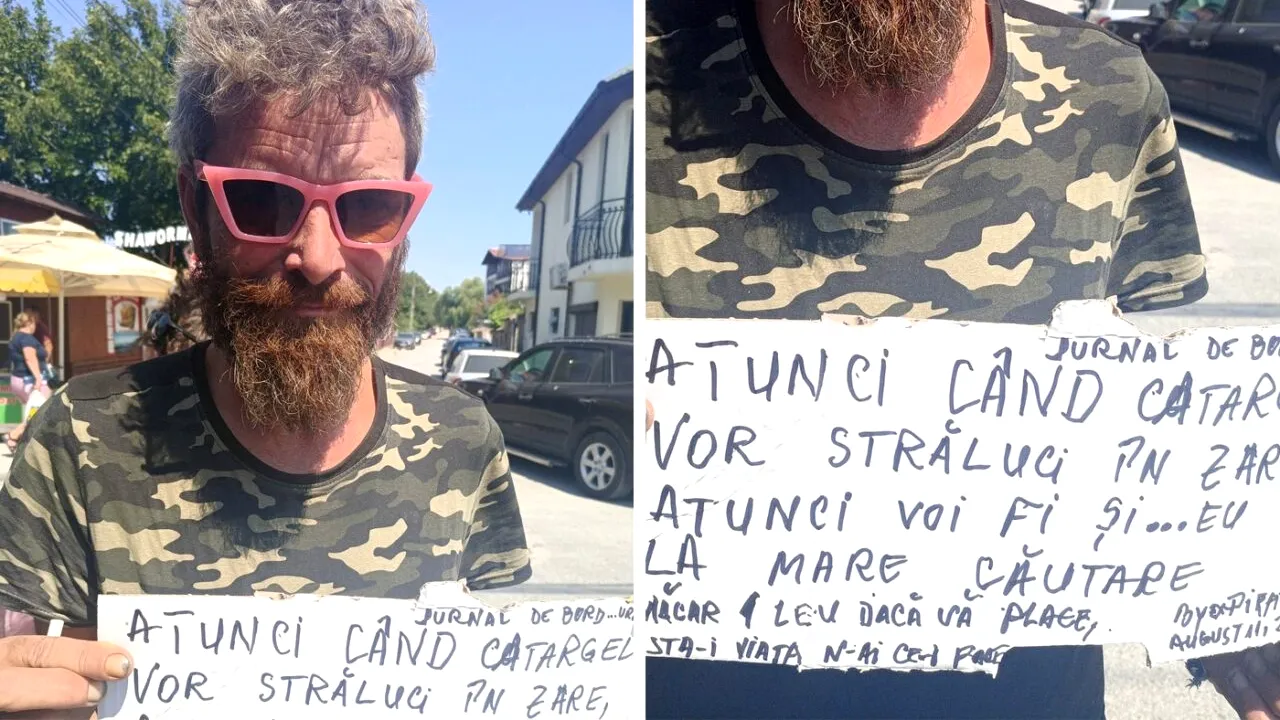 SHAWORM
JURNAL DE BORD...UR
ATUNCI CÂND CATARGEL
VOR STRĂLUCI ÎN ZARE,
JURNAL DE BOR
ATUNCI CÂND CATARG
VOR STRĂLUCI ÎN ZARE
ATUNCI VOI FI ȘI...EU
LA MARE CĂUTARE
MĂCAR 1 LEU DACĂ VĂ PLACE,
STA-I VIAȚA N-AI CE-I FACE
AUGUSTIN